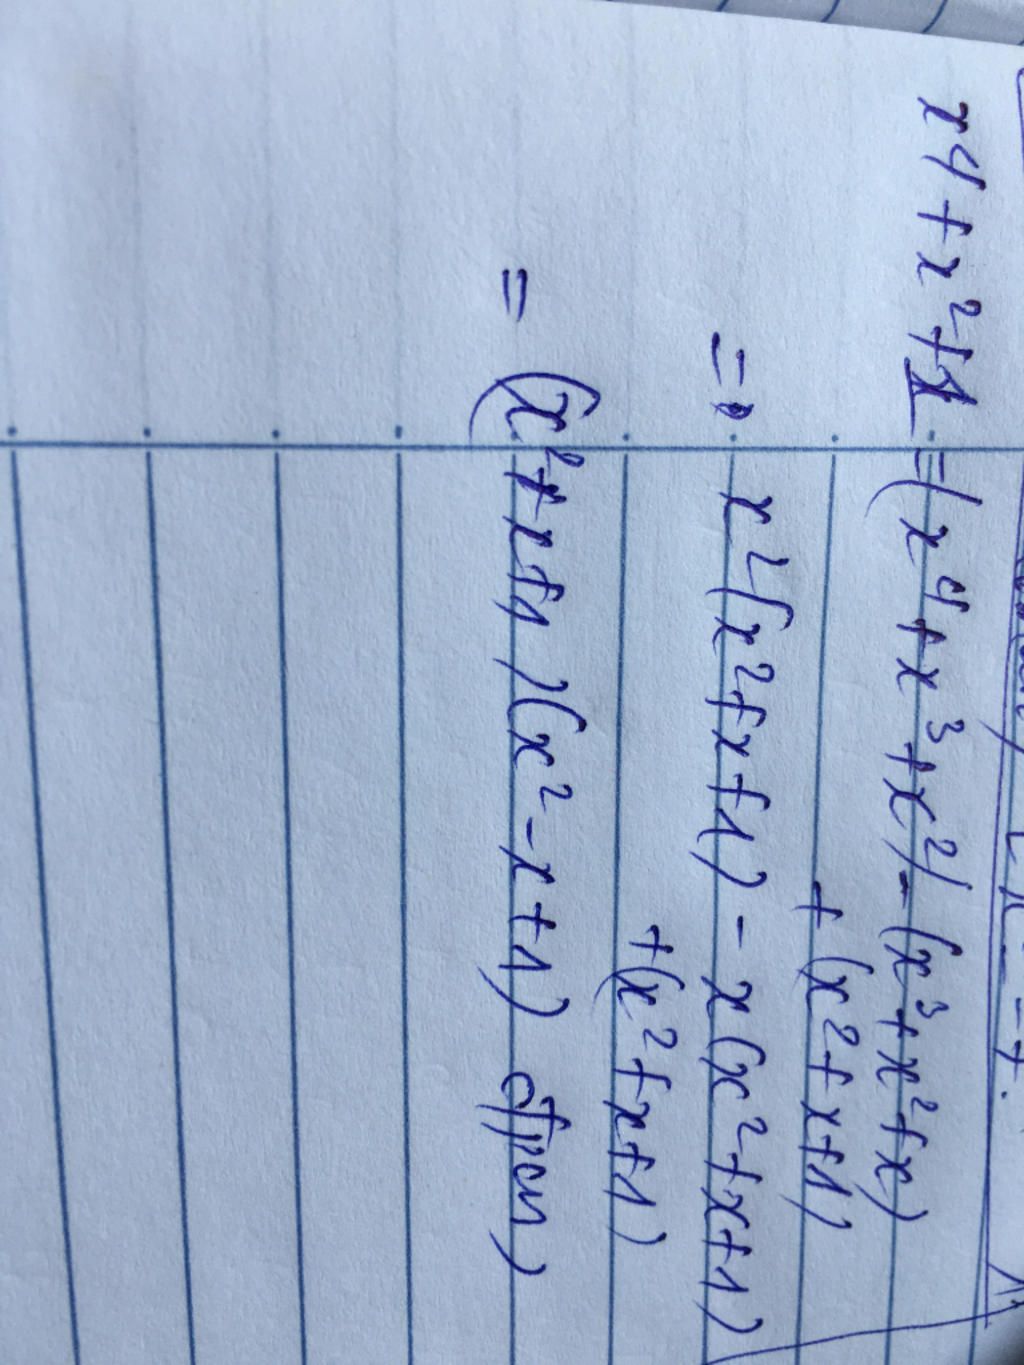 x⁴ + x² + 1 = (x⁴ + x³ + x²) - (x³ + x² + x)
+ (x² + x + 1)
= x²(x² + x + 1) - x(x² + x + 1)
+ (x² + x + 1)
= (x² + x + 1)(x² - x + 1)